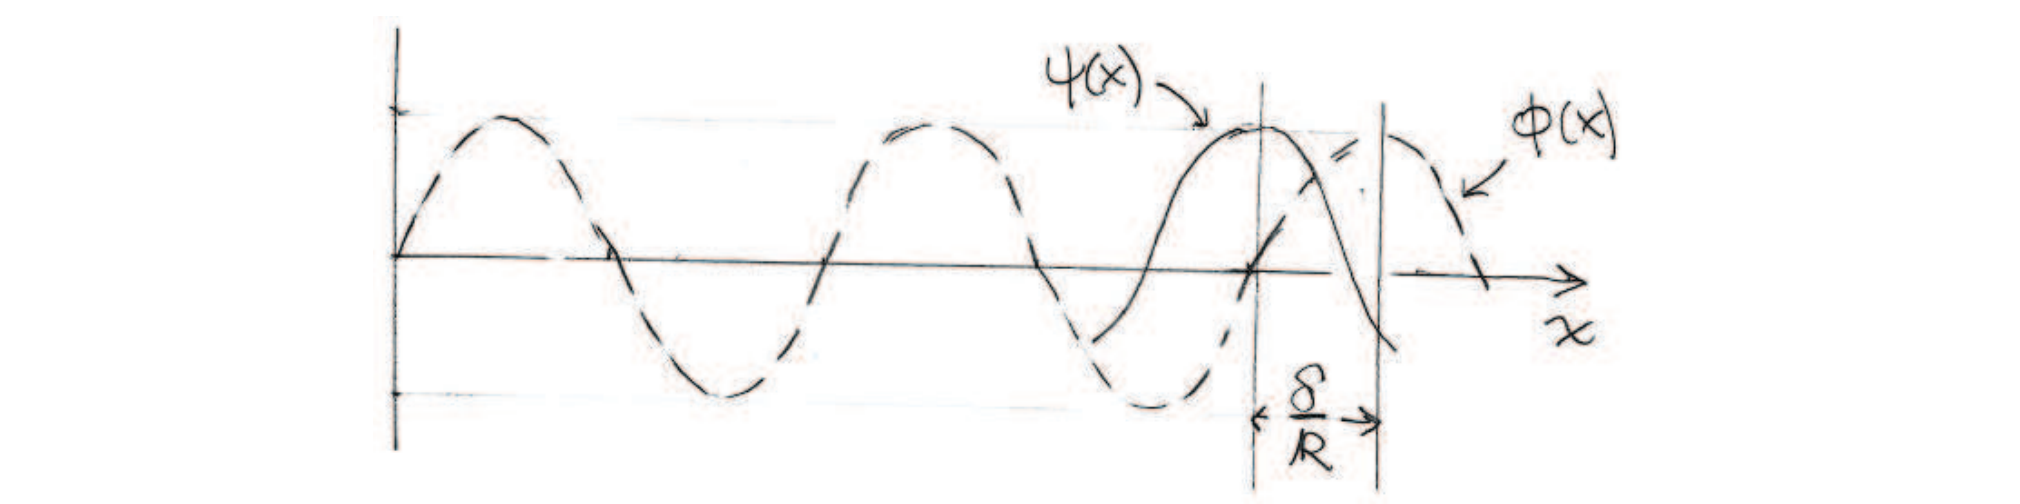 ψ(x)
ϕ(x)
x
δ
k